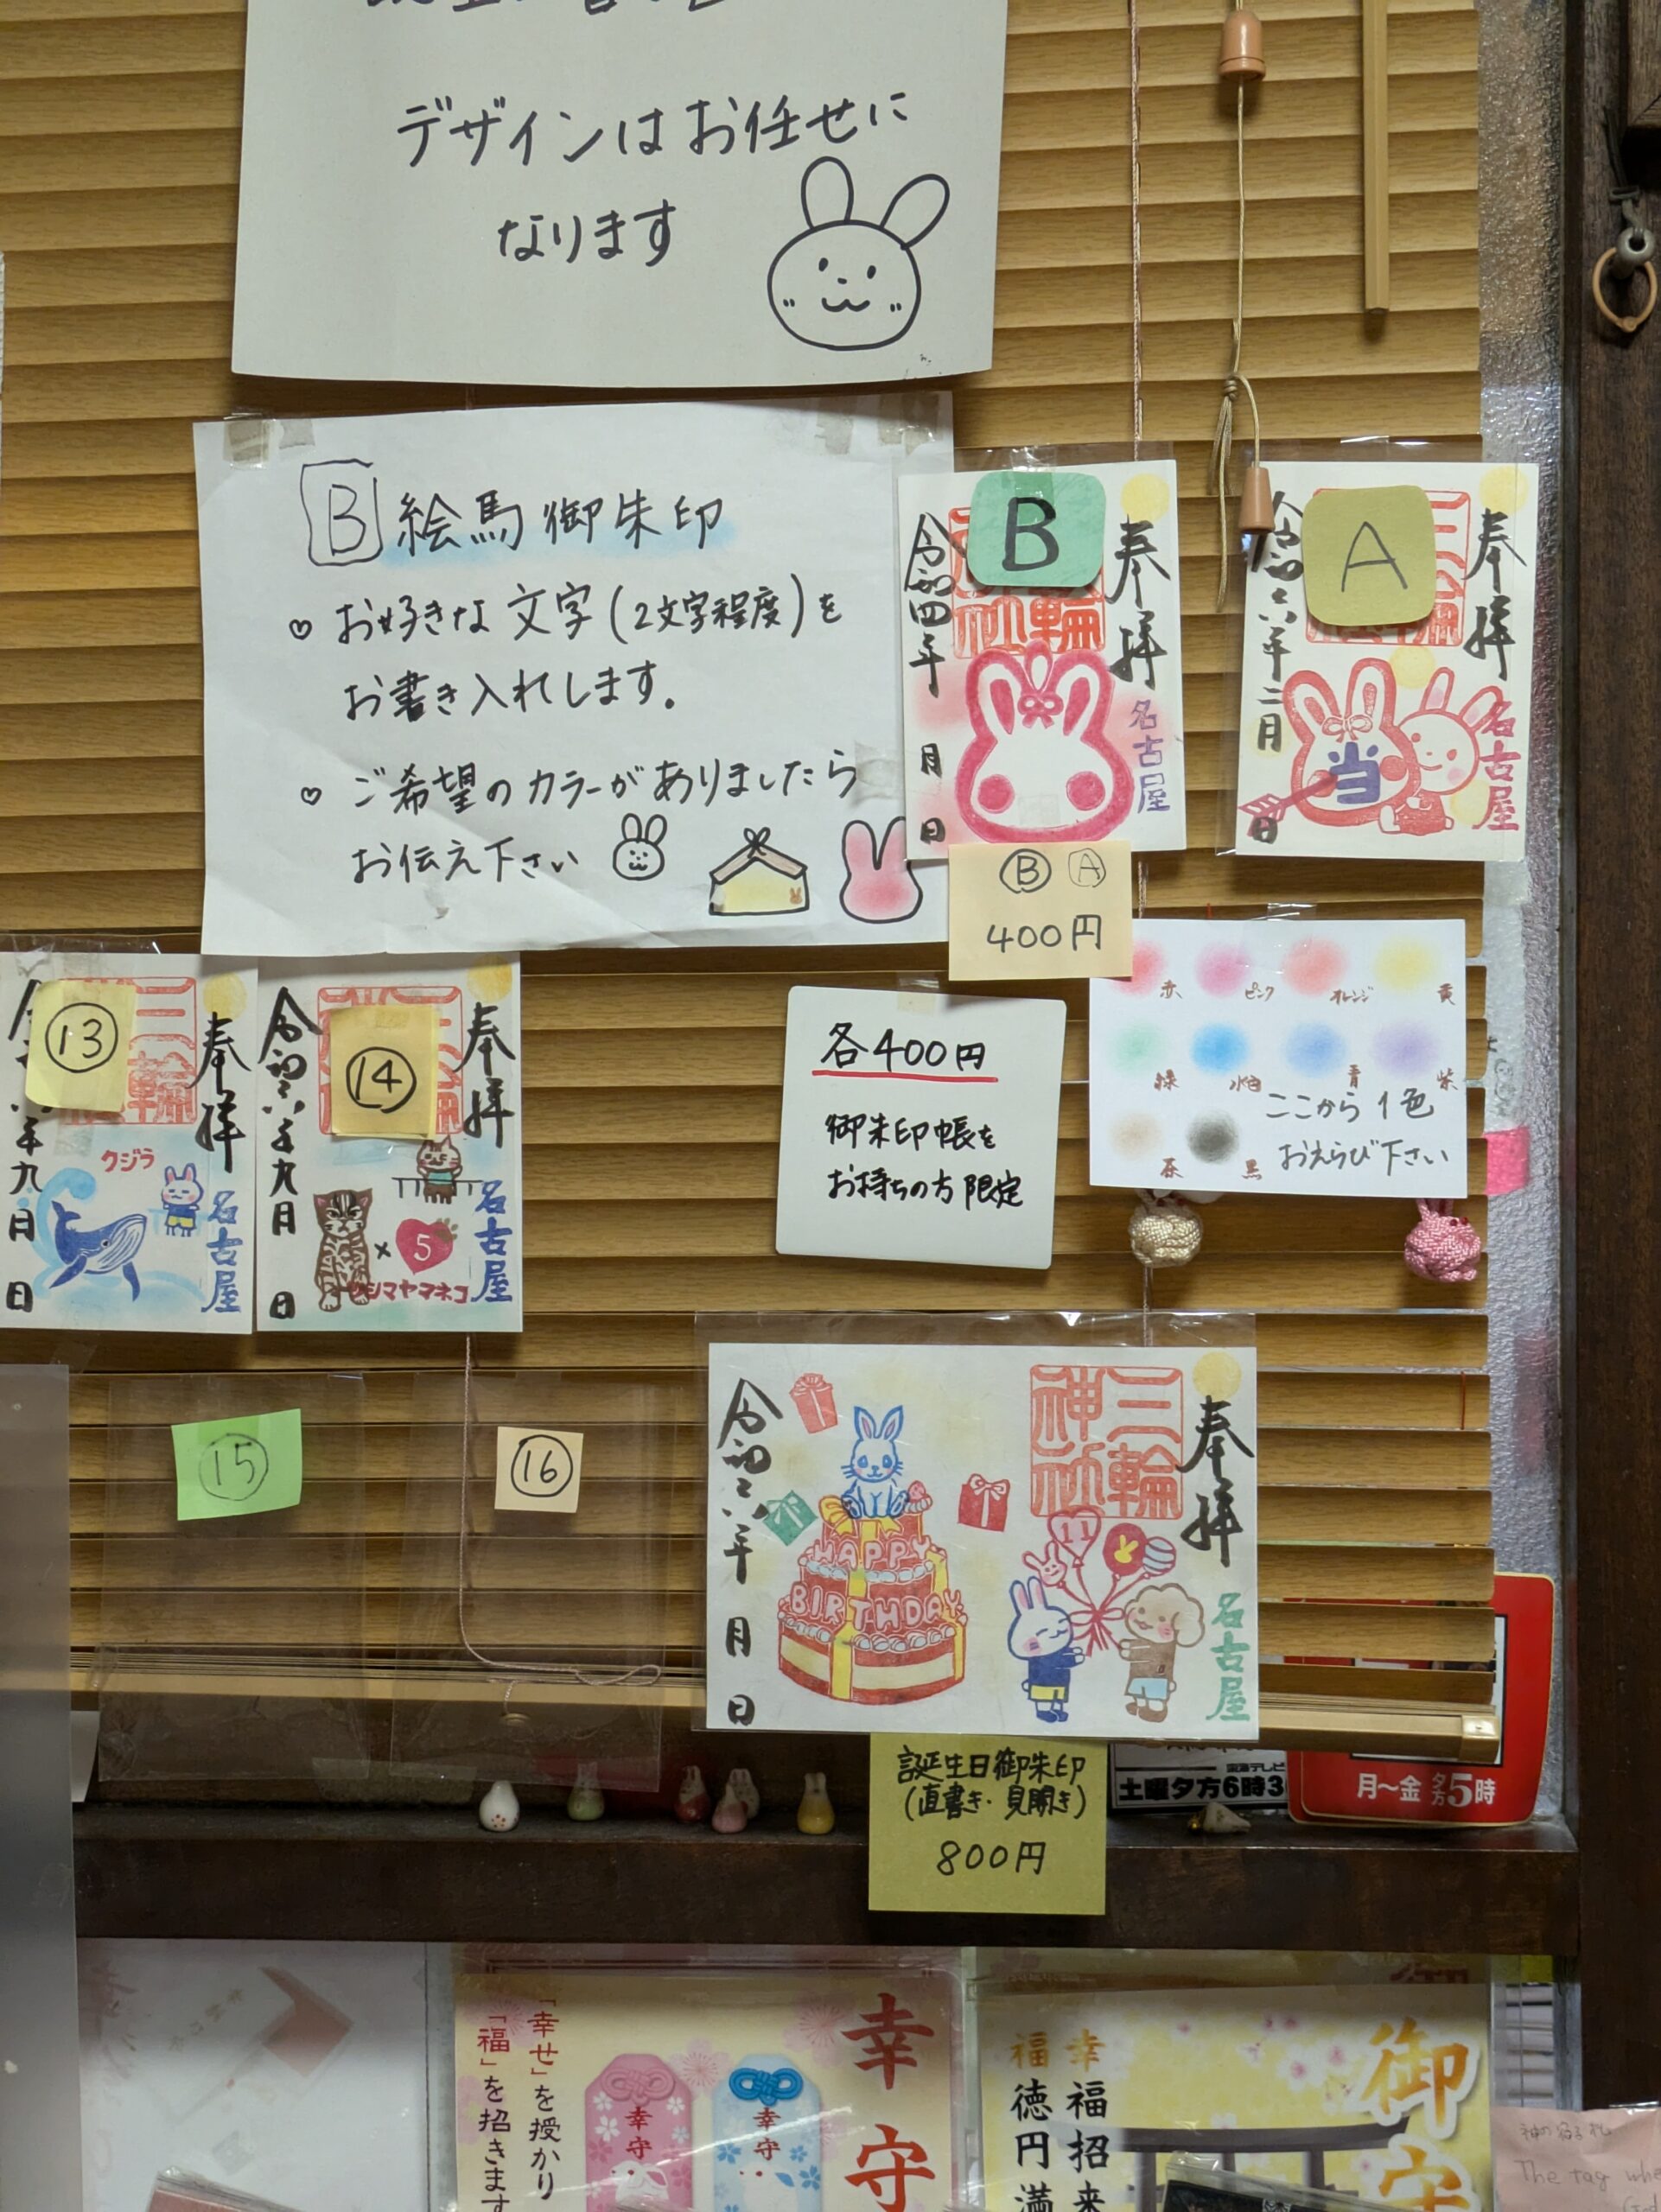 デザインはお任せに
なります
B 絵馬御朱印
♡ お好きな文字(2文字程度)を
お書き入れします。
♡ ご希望のカラーがありましたら
お伝え下さい
B
奉拝
名古屋
令和四年 月 日
A
奉拝
名古屋
当
令和六年二月 日
Ⓑ A
400円
赤 ピンク オレンジ 黄
緑 水色 青 紫
茶 黒
ここから1色
おえらび下さい
各400円
御朱印帳を
お持ちの方限定
⑬
奉拝
三輪
クジラ
名古屋
年九月 日
⑭
奉拝
名古屋
×5
シマヤマネコ
令和六年九月 日
⑮
⑯
奉拝
三輪神社
名古屋
11
HAPPY
BIRTHDAY
令和六年 月 日
誕生日御朱印
(直書き・見開き)
800円
土曜夕方6時3
月〜金 夕方5時
幸守
「幸せ」を授かり
「福」を招きます
幸守
幸守
御守
幸福招来
福徳円満
The tag whe